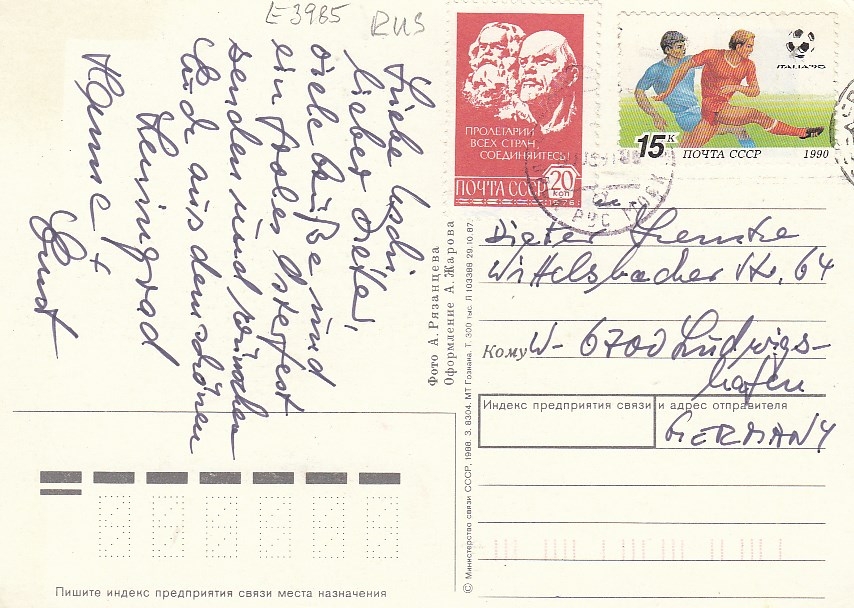 E3985 RUS
Liebe Uschi,
lieber Dieter,
viele Grüße und
ein frohes Osterfest
senden und wünschen
Euch aus dem schönen
Leningrad
Hanne +
Ernst
ПРОЛЕТАРИИ
ВСЕХ СТРАН,
СОЕДИНЯЙТЕСЬ!
ПОЧТА СССР 20
КОП
1976
ITALIA'90
15 К ПОЧТА СССР 1990
Dieter
Wittelsbacher Str. 64
Кому W- 6700 Ludwigs-
hafen
Индекс предприятия связи и адрес отправителя
GERMANY
Фото А. Рязанцева
Оформление А. Жарова
© Министерство связи СССР, 1988. З. 8304. МТ Гознака. Т. 300 тыс. Л 103388 29.10.87
Пишите индекс предприятия связи места назначения